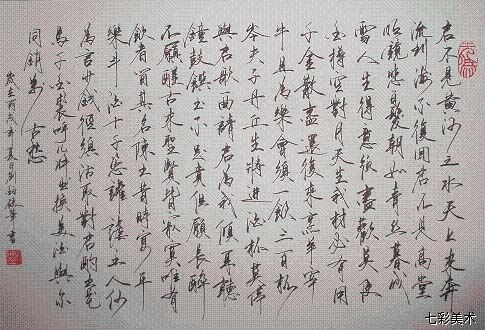 君不見黃河之水天上來奔
流到海不復回君不見高堂
明鏡悲白髮朝如青絲暮成
雪人生得意須盡歡莫使
金樽空對月天生我材必有用
千金散盡還復來烹羊宰
牛且為樂會須一飲三百杯
岑夫子丹丘生將進酒杯莫停
與君歌一曲請君為我傾耳聽
鐘鼓饌玉不足貴但願長醉
不願醒古來聖賢皆寂寞唯有
飲者留其名陳王昔時宴平
樂斗酒十千恣讙謔主人何
為言少錢徑須沽取對君酌五花
馬千金裘呼兒將出換美酒與爾
同銷萬古愁
戌年夏 書
七彩美术